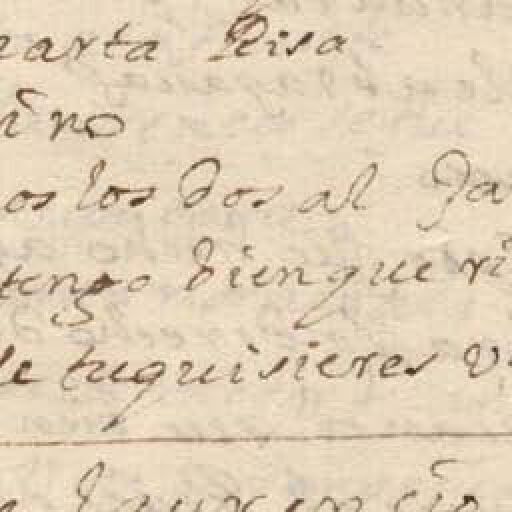 carta Risa
iño
os los dos al Ja
tengo bien que ri
de tuquisieres v
Laurencio